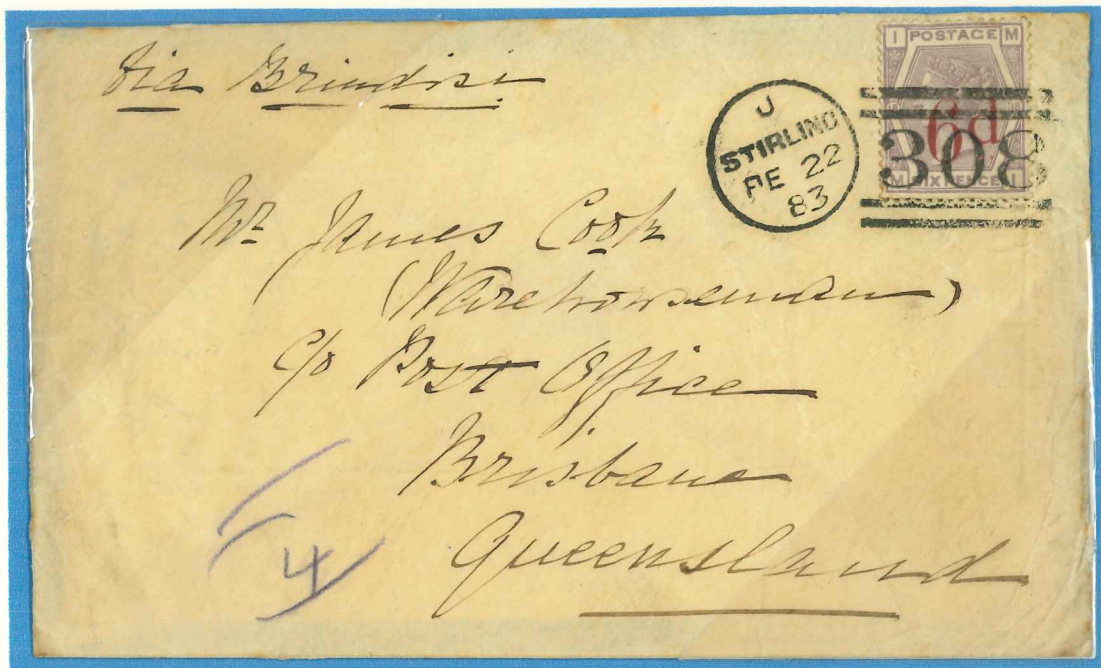 Via Brindisi
I POSTAGE M
6d
M SIX PENCE I
308
J
STIRLING
FE 22
83
Mr James Cook
(Warehouseman)
c/o Post Office
Brisbane
Queensland
4